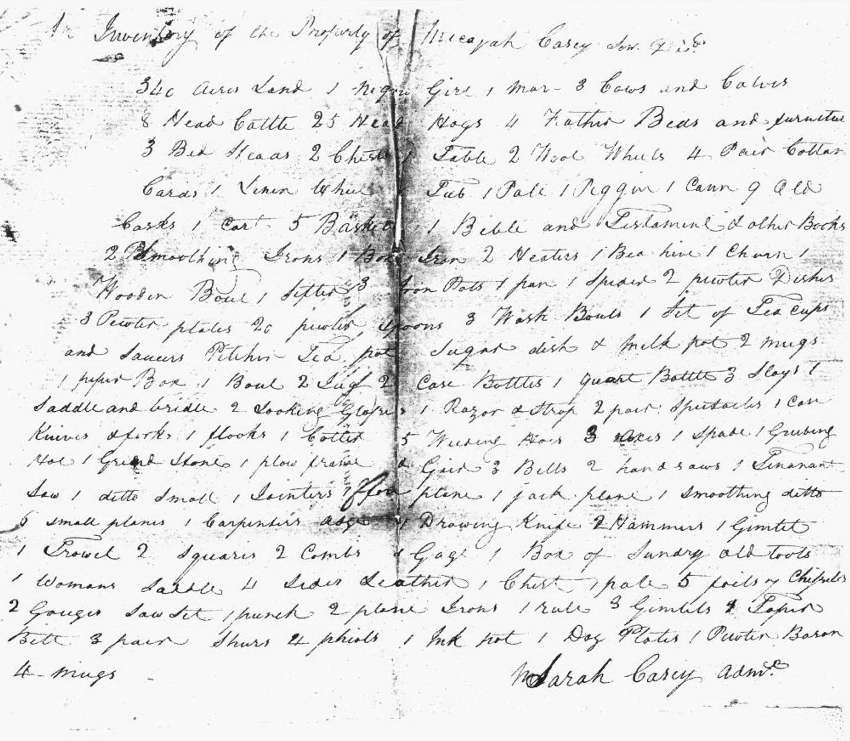 An Inventory of the Property of Micajah Casey Jun. Decd.
340 Acres Land 1 Negro Girl 1 Mar 3 Cows and Calves
8 Head Cattle 25 Head Hogs 4 Feather Beds and furnitue
3 Bed Steads 2 Chests 1 Table 2 Wool Wheels 4 Pair Cotton
Cards 1 Linen Whiel 1 Tub 1 Pale 1 Piggin 1 Cann 9 Old
Casks 1 Cart 5 Baskets 1 Bible and Testament & other Books
2 Smoothing Irons 1 Box Iron 2 Heaters 1 Bea hive 1 Churn 1
Wooden Bowl 1 Sifter 3 Iron Pots 1 pan 1 Spider 2 pewter Dishes
3 Pewter plates 20 pewter spoons 3 Wash Bowls 1 Set of Tea cups
and saucers Pitcher Tea pot Sugar dish & milk pot 2 mugs
1 peper Box 1 Bowl 2 Jugs 2 Case Bottles 1 quart Bottle 3 Slays 1
Saddle and bridle 2 Looking Glases 1 Razor & Strop 2 pair Spectacles 1 Case
Knives & forks 1 flooks 1 Cotter 5 Weeding Hoes 3 axes 1 Spade 1 Grubing
Hoe 1 Grind Stone 1 plow frame & Gear 3 Bells 2 hand saws 1 Tenanant
Saw 1 ditto small 1 Jointers 1 fore plane 1 jack plane 1 smoothing ditto
6 small planes 1 Carpenters adge 1 Drawing Knife 2 Hammers 1 Gimlet
1 Trowel 2 Squares 2 Combs 1 Gage 1 Box of Sundry old tools
1 Womans Saddle 4 Sides Leather 1 Chest 1 pale 5 Chissels
2 Gouges Saw Set 1 punch 2 plane Irons 1 rule 3 Gimlets 1 Taper
Bitt 3 pair Shurs 4 phiols 1 Ink pot 1 Doz Plates 1 Pewter Bason
4 mugs
Sarah Casey Admx.